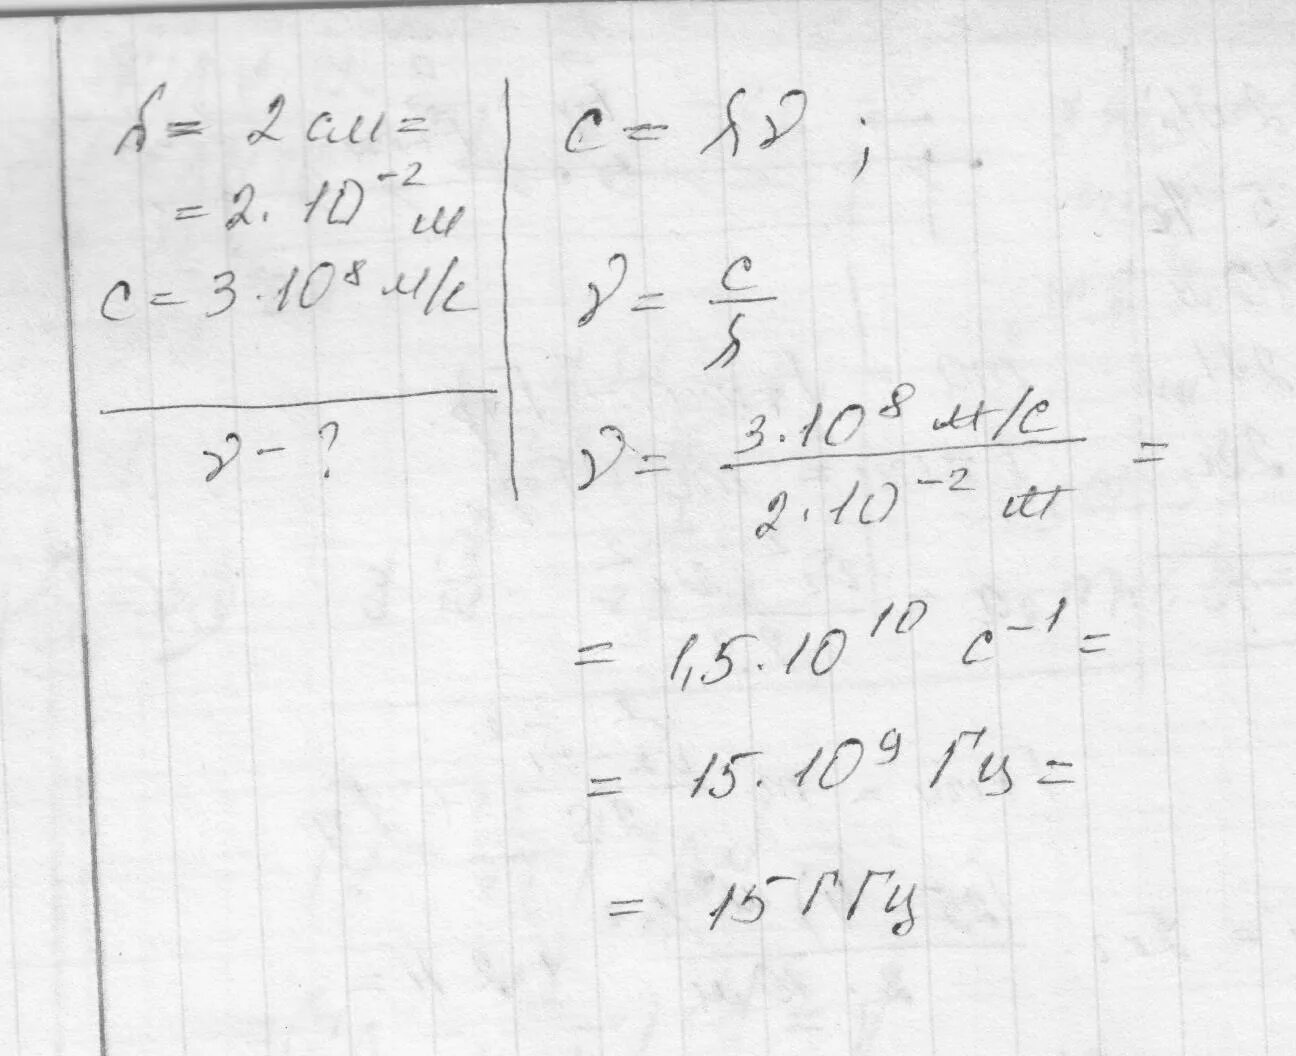 λ = 2 см =
= 2 · 10⁻² м
с = 3 · 10⁸ м/с
ν - ?
с = λν ;
ν = с/λ
ν = 3·10⁸ м/с / 2·10⁻² м =
= 1,5 · 10¹⁰ с⁻¹ =
= 15 · 10⁹ Гц =
= 15 ГГц